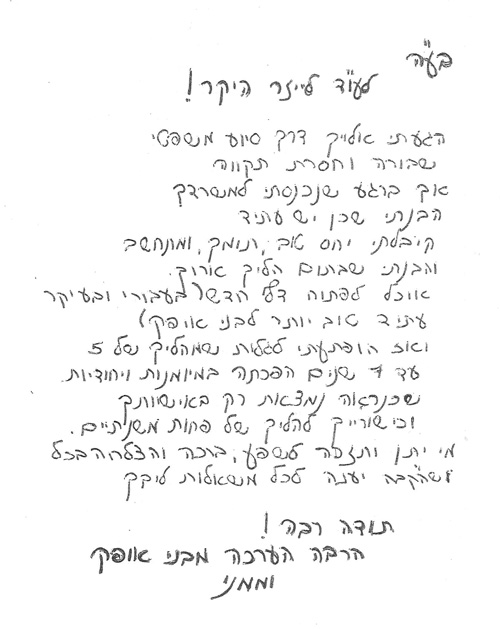 בע"ה
לעו"ד לייזר היקר!
הגעתי אלייך דרך סיוע משפטי
שבורה וחסרת תקווה
אך ברגע שנכנסתי למשרדך
הבנתי שכן יש עתיד
קיבלתי יחס טוב, תומך, ומתחשב
והבנתי שבתום הליך ארוך
אוכל לפתוח דף חדש (בעבורי ובעיקר
עתיד טוב יותר לבני אופק)
ואז הופתעתי לגלות שמהליך של 5
עד 7 שנים הפכתה במיומנות ויחודיות.
שכנראה נמצאות רק באישיותך
וכישורייך להליך של פחות משנתיים.
מי יתן ותזכה לשפע, ברכה והצלחה בכל
ושהקבה יענה לכל משאלות ליבך
תודה רבה!
הרבה הערכה מבני אופק
וממני